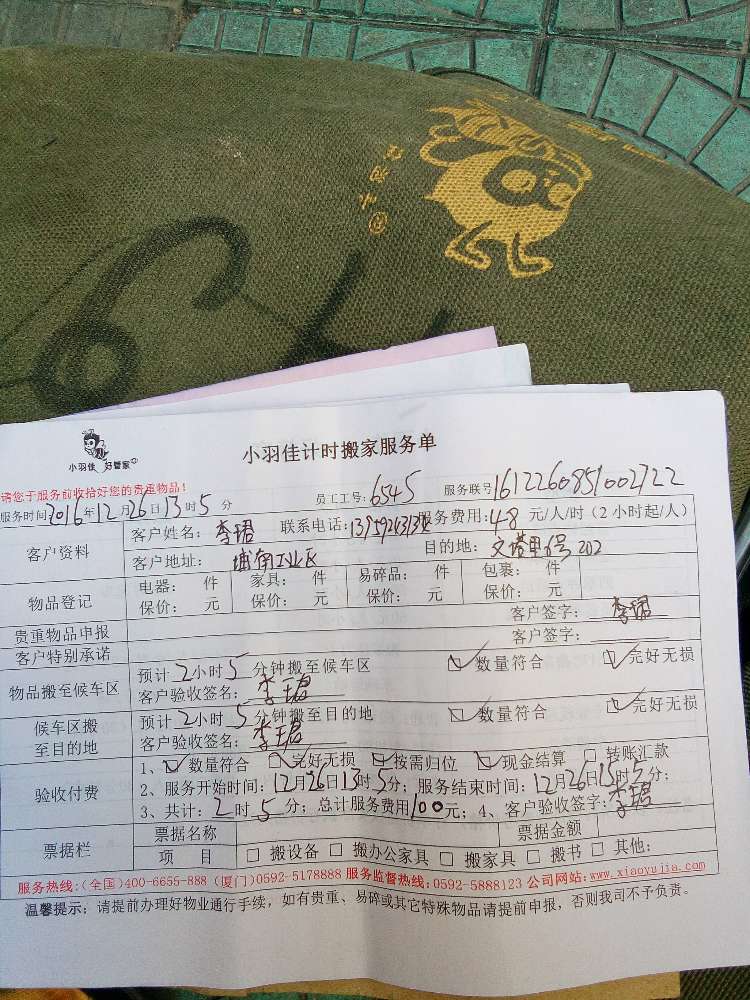 小羽佳 好管家
小羽佳计时搬家服务单
请您于服务前收拾好您的贵重物品!
服务时间2016年12月26日13时5分 员工工号:6545 服务联号1612260851002722
客户资料 客户姓名: 李珺 联系电话: 服务费用:48 元/人/时(2小时起/人)
客户地址: 埔南工业区 目的地: 文塔里6号202
物品登记 电器: 件 家具: 件 易碎品: 件 包裹: 件
保价: 元 保价: 元 保价: 元 保价: 元
贵重物品申报 客户签字: 李珺
客户特别承诺 客户签字:
物品搬至候车区 预计2小时5分钟搬至候车区 ☑数量符合 ☑完好无损
客户验收签名: 李珺
候车区搬至目的地 预计2小时5分钟搬至目的地 ☑数量符合 ☑完好无损
客户验收签名: 李珺
验收付费 1、☑数量符合 ☑完好无损 ☑按需归位 ☑现金结算 □转账汇款
2、服务开始时间:12月26日13时5分; 服务结束时间:12月26日15时5分;
3、共计:2时5分; 总计服务费用100元; 4、客户验收签字:李珺
票据栏 票据名称 票据金额
项 目 □搬设备 □搬办公家具 □搬家具 □搬书 □其他:
服务热线:(全国)400-6655-888 (厦门)0592-5178888 服务监督热线:0592-5888123 公司网站:www.xiaoyujia.com
温馨提示:请提前办理好物业通行手续,如有贵重、易碎或其它特殊物品请提前申报,否则我司不予负责。